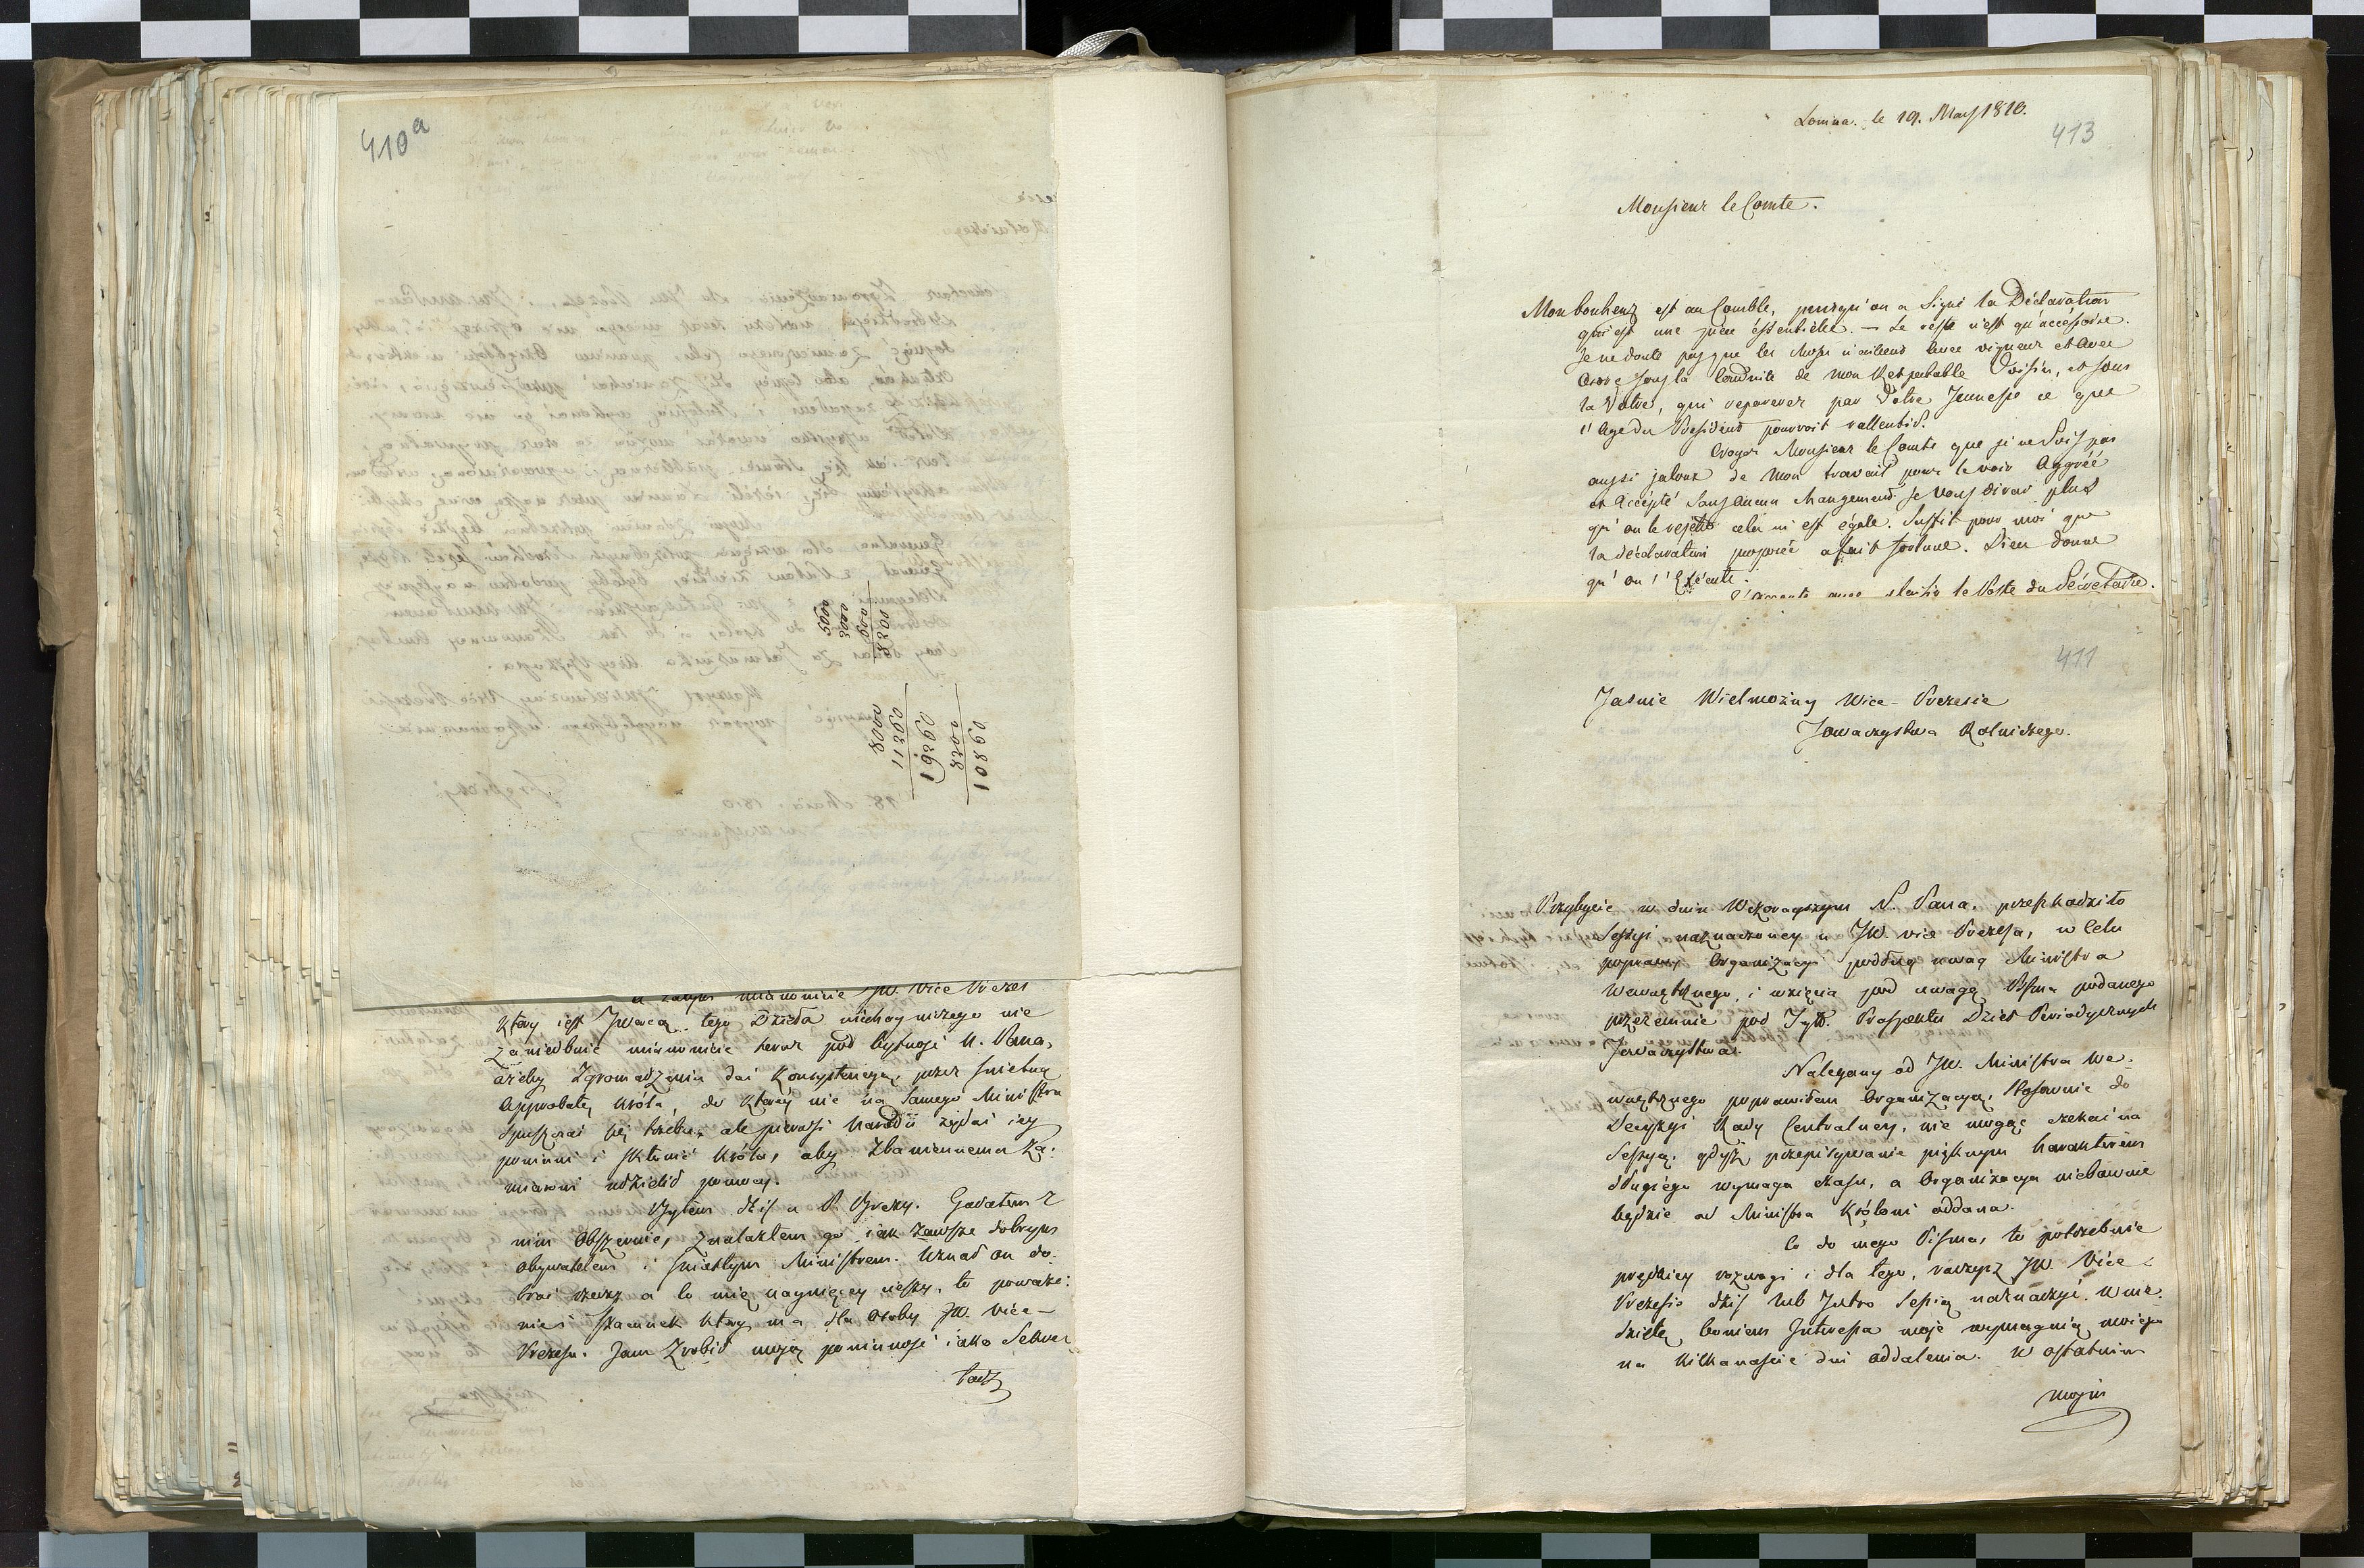 410a
5000
3000
600
8300
8000
11360
19360
8300
10860
a zatym mianowicie JW. Vice Prezes
ktory iest Twórcą tego Dzieła niechay niczego nie
zaniedbuie mianowicie teraz pod bytność N. Pana,
ażeby Zgromadzeniu dać konsystencyą, przez świetną
Approbatę Króla, do ktorey nie na samego Ministra
spuszczać się trzeba, ale pierwsi Narodu żądać iey
powinni i skłonić Króla, aby zbawiennemu za-
miarowi udzielił pomocy.
Byłem dziś u P. Brezy. Gadałem z
nim obszernie, znalazłem go iak zawsze dobrym
obywatelem i światłym Ministrem. Uznał on do-
broć rzeczy a co mię naywięcey cieszy, to poważa-
nie i szacunek który ma dla osoby JW. Vice-
Prezesa. Jam zrobił moją powinność iako Sekre
tarz
Lomna. le 19. May 1810.
413
Monsieur le Comte.
Mon bonheur est au Comble, puisqu'on a signé la Déclaration
qui est une pièce éssentielle. — Le reste n'est qu'accéssoire.
Je ne doute pas que les choses n'aillent avec vigueur et avec
ordre sous la Conduite de mon Respectable Voisin, et sous
la Votre, qui reparerez par Votre Jeunesse ce que
l'Age du President pourroit rallentir.
Croyez Monsieur le Comte que je ne suis pas
aussi jaloux de mon travail pour le voir Aggréé
et Accépté sans aucun changement. Je vous dirai plus
qu'on le rejette cela m'est égale. Suffit pour moi que
la déclaration proposée a fait fortune. Dieu donne
qu'on l'Exécute.
J'accepte avec plaisir le Poste du Sécretaire.
411
Jaśnie Wielmożny Wice-Prezesie
Towarzystwa Rolniczego.
Przybycie w dniu Wczorayszym N. Pana, przeszkodziło
Sessyi naznaczoney u JW. vice Prezesa, w Celu
poprawy Organizacyi podług uwag Ministra
Wewnętrznego, i wzięcia pod uwagę Pisma podanego
przezemnie pod Tyt. Prospektu Dzieł Periodycznych
Towarzystwa.
Nalegany od JW. Ministra We-
wnętrznego poprawiłem Organizacyą, stosownie do
Decyzyi Rady Centralney, nie mogąc czekać na
Sessyą, gdyż przepisywanie pięknym karakterem
długiego wymaga czasu, a Organizacya niebawnie
będzie od Ministra Królowi oddana.
Co do mego Pisma, te potrzebuie
prędkiey rozwagi i dla tego, raczysz JW Vice-
Prezesie dziś lub Jutro Sessią naznaczyć. W nie-
dzielę bowiem Interessa moje wymagaią moiego
na kilkanaście dni oddalenia. W ostatnim
moim